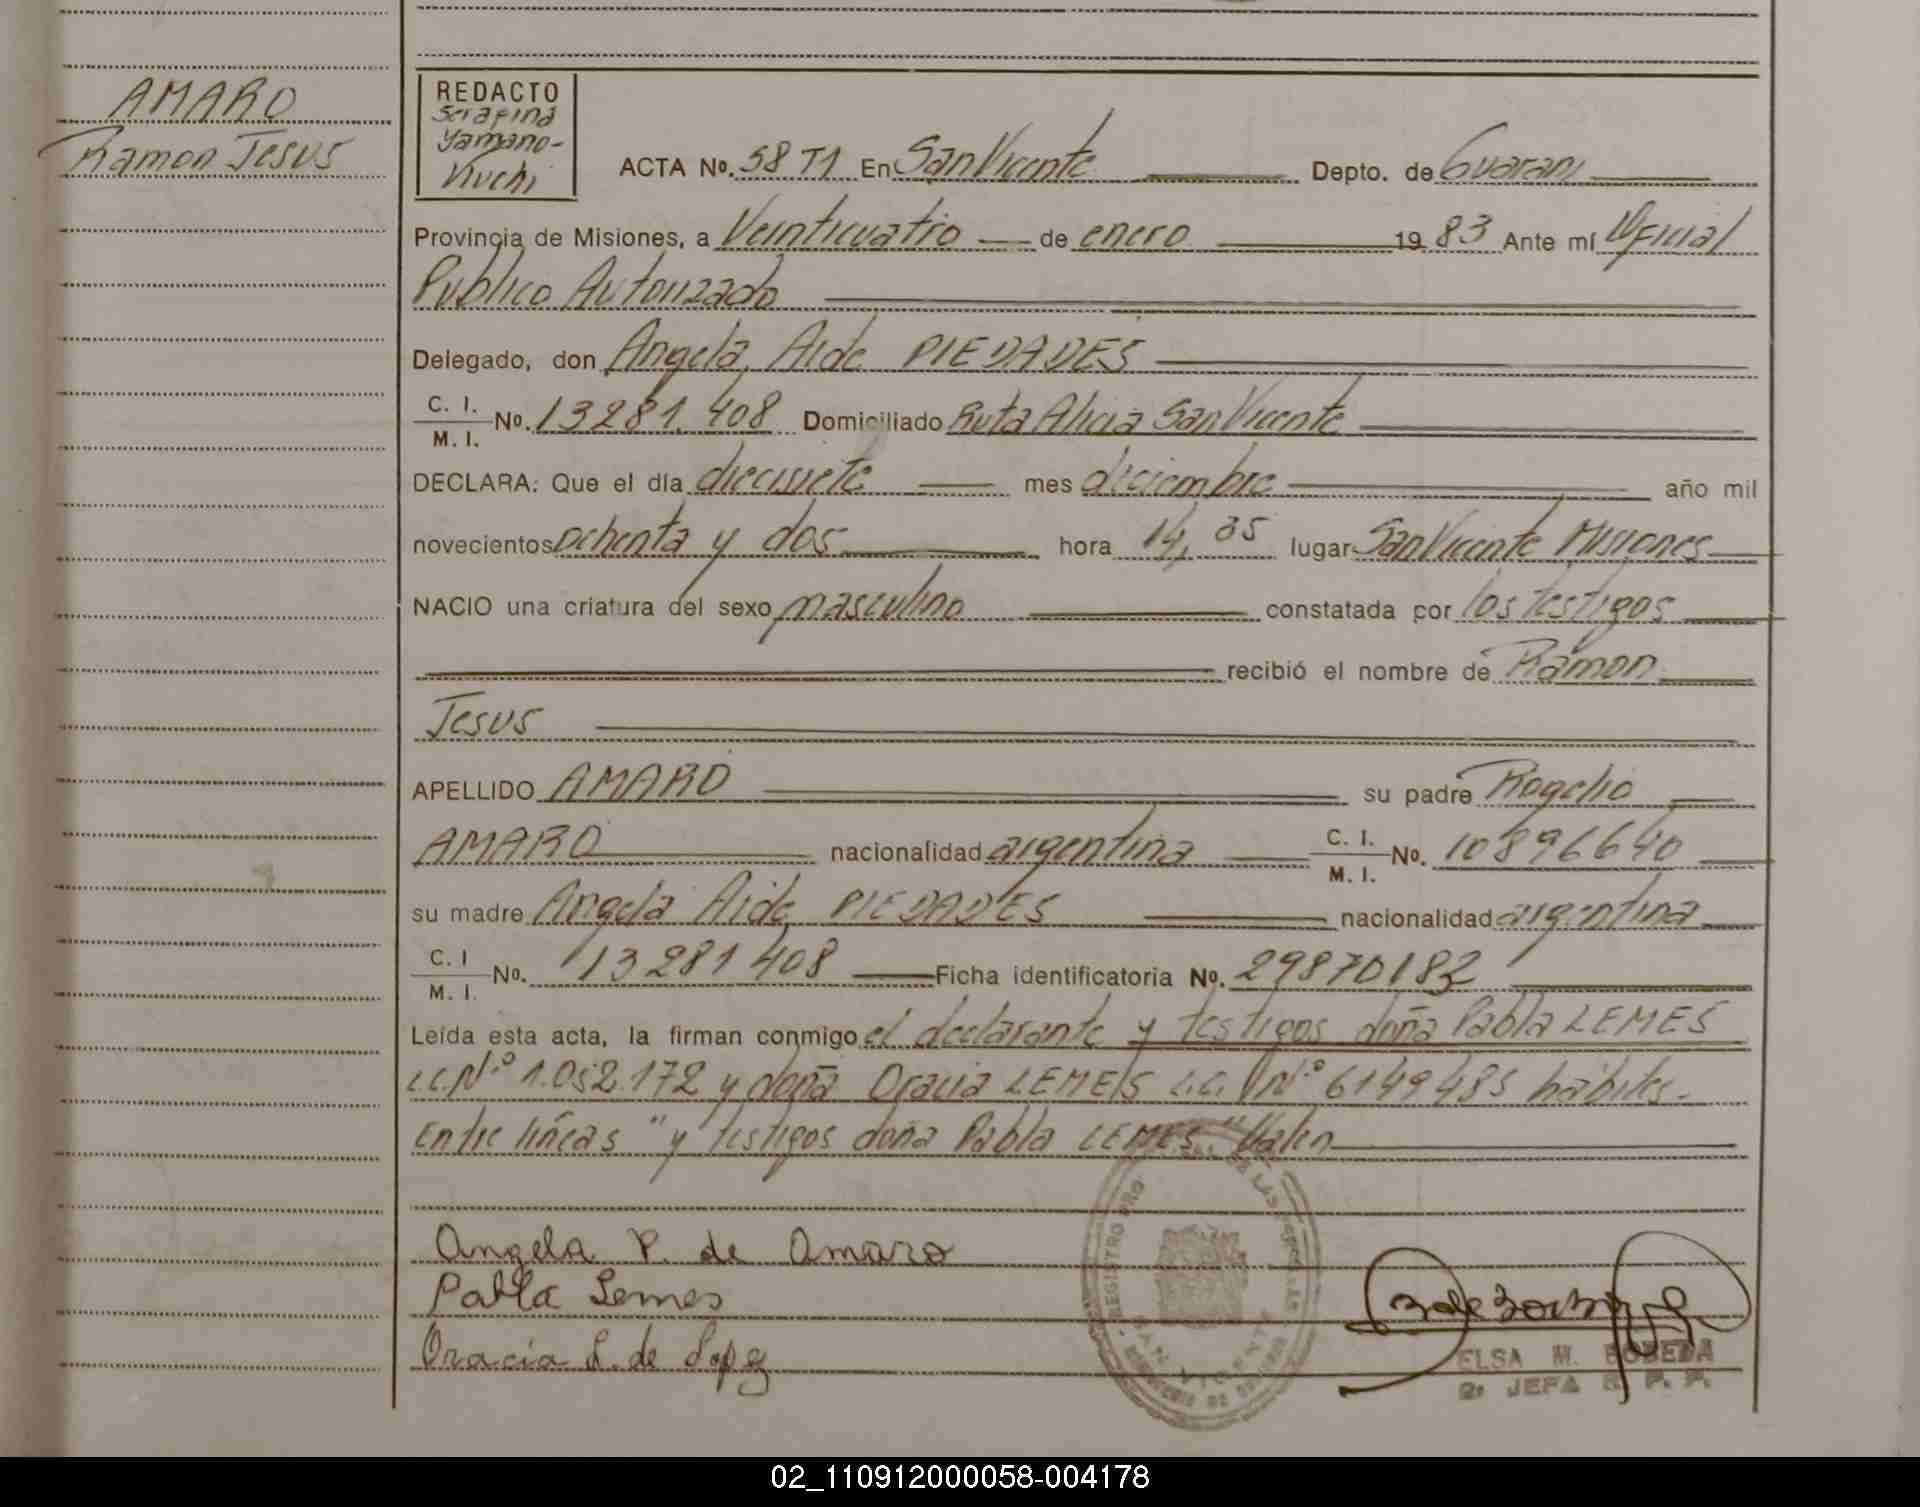 AMARO
Ramon Jesus
REDACTO
Serafina
Yamano-
Kuchi
ACTA No. 58 T1 En San Vicente Depto. de Guarani
Provincia de Misiones, a Veinticuatro de enero 19 83 Ante mí Oficial
Publico Autorizado
Delegado, don Angela Aide PIEDADES
C. I.
M. I. No. 13281.408 Domiciliado Ruta Alicia San Vicente
DECLARA: Que el día diecisiete mes diciembre año mil
novecientos ochenta y dos hora 14,35 lugar San Vicente Misiones
NACIO una criatura del sexo masculino constatada por los testigos
recibió el nombre de Ramon
Jesus
APELLIDO AMARO su padre Rogelio
AMARO nacionalidad argentina C. I.
M. I. No. 10896640
su madre Angela Aide PIEDADES nacionalidad argentina
C. I
M. I. No. 13281408 Ficha identificatoria No. 29870182
Leída esta acta, la firman conmigo el declarante y testigos doña Pabla LEMES
L.C. Nº 1.052.172 y doña Oracia LEMES L.C. Nº 6149485 hábiles.
Entre líneas "y testigos doña Pabla LEMES" Valen
Angela P. de Amaro
Pabla Lemes
Oracia L. de Lopez
REGISTRO PRO
DE LAS PERSONAS
SAN VICENTE
ELSA M. BOBEDA
2º JEFA R. P. P.
02_110912000058-004178